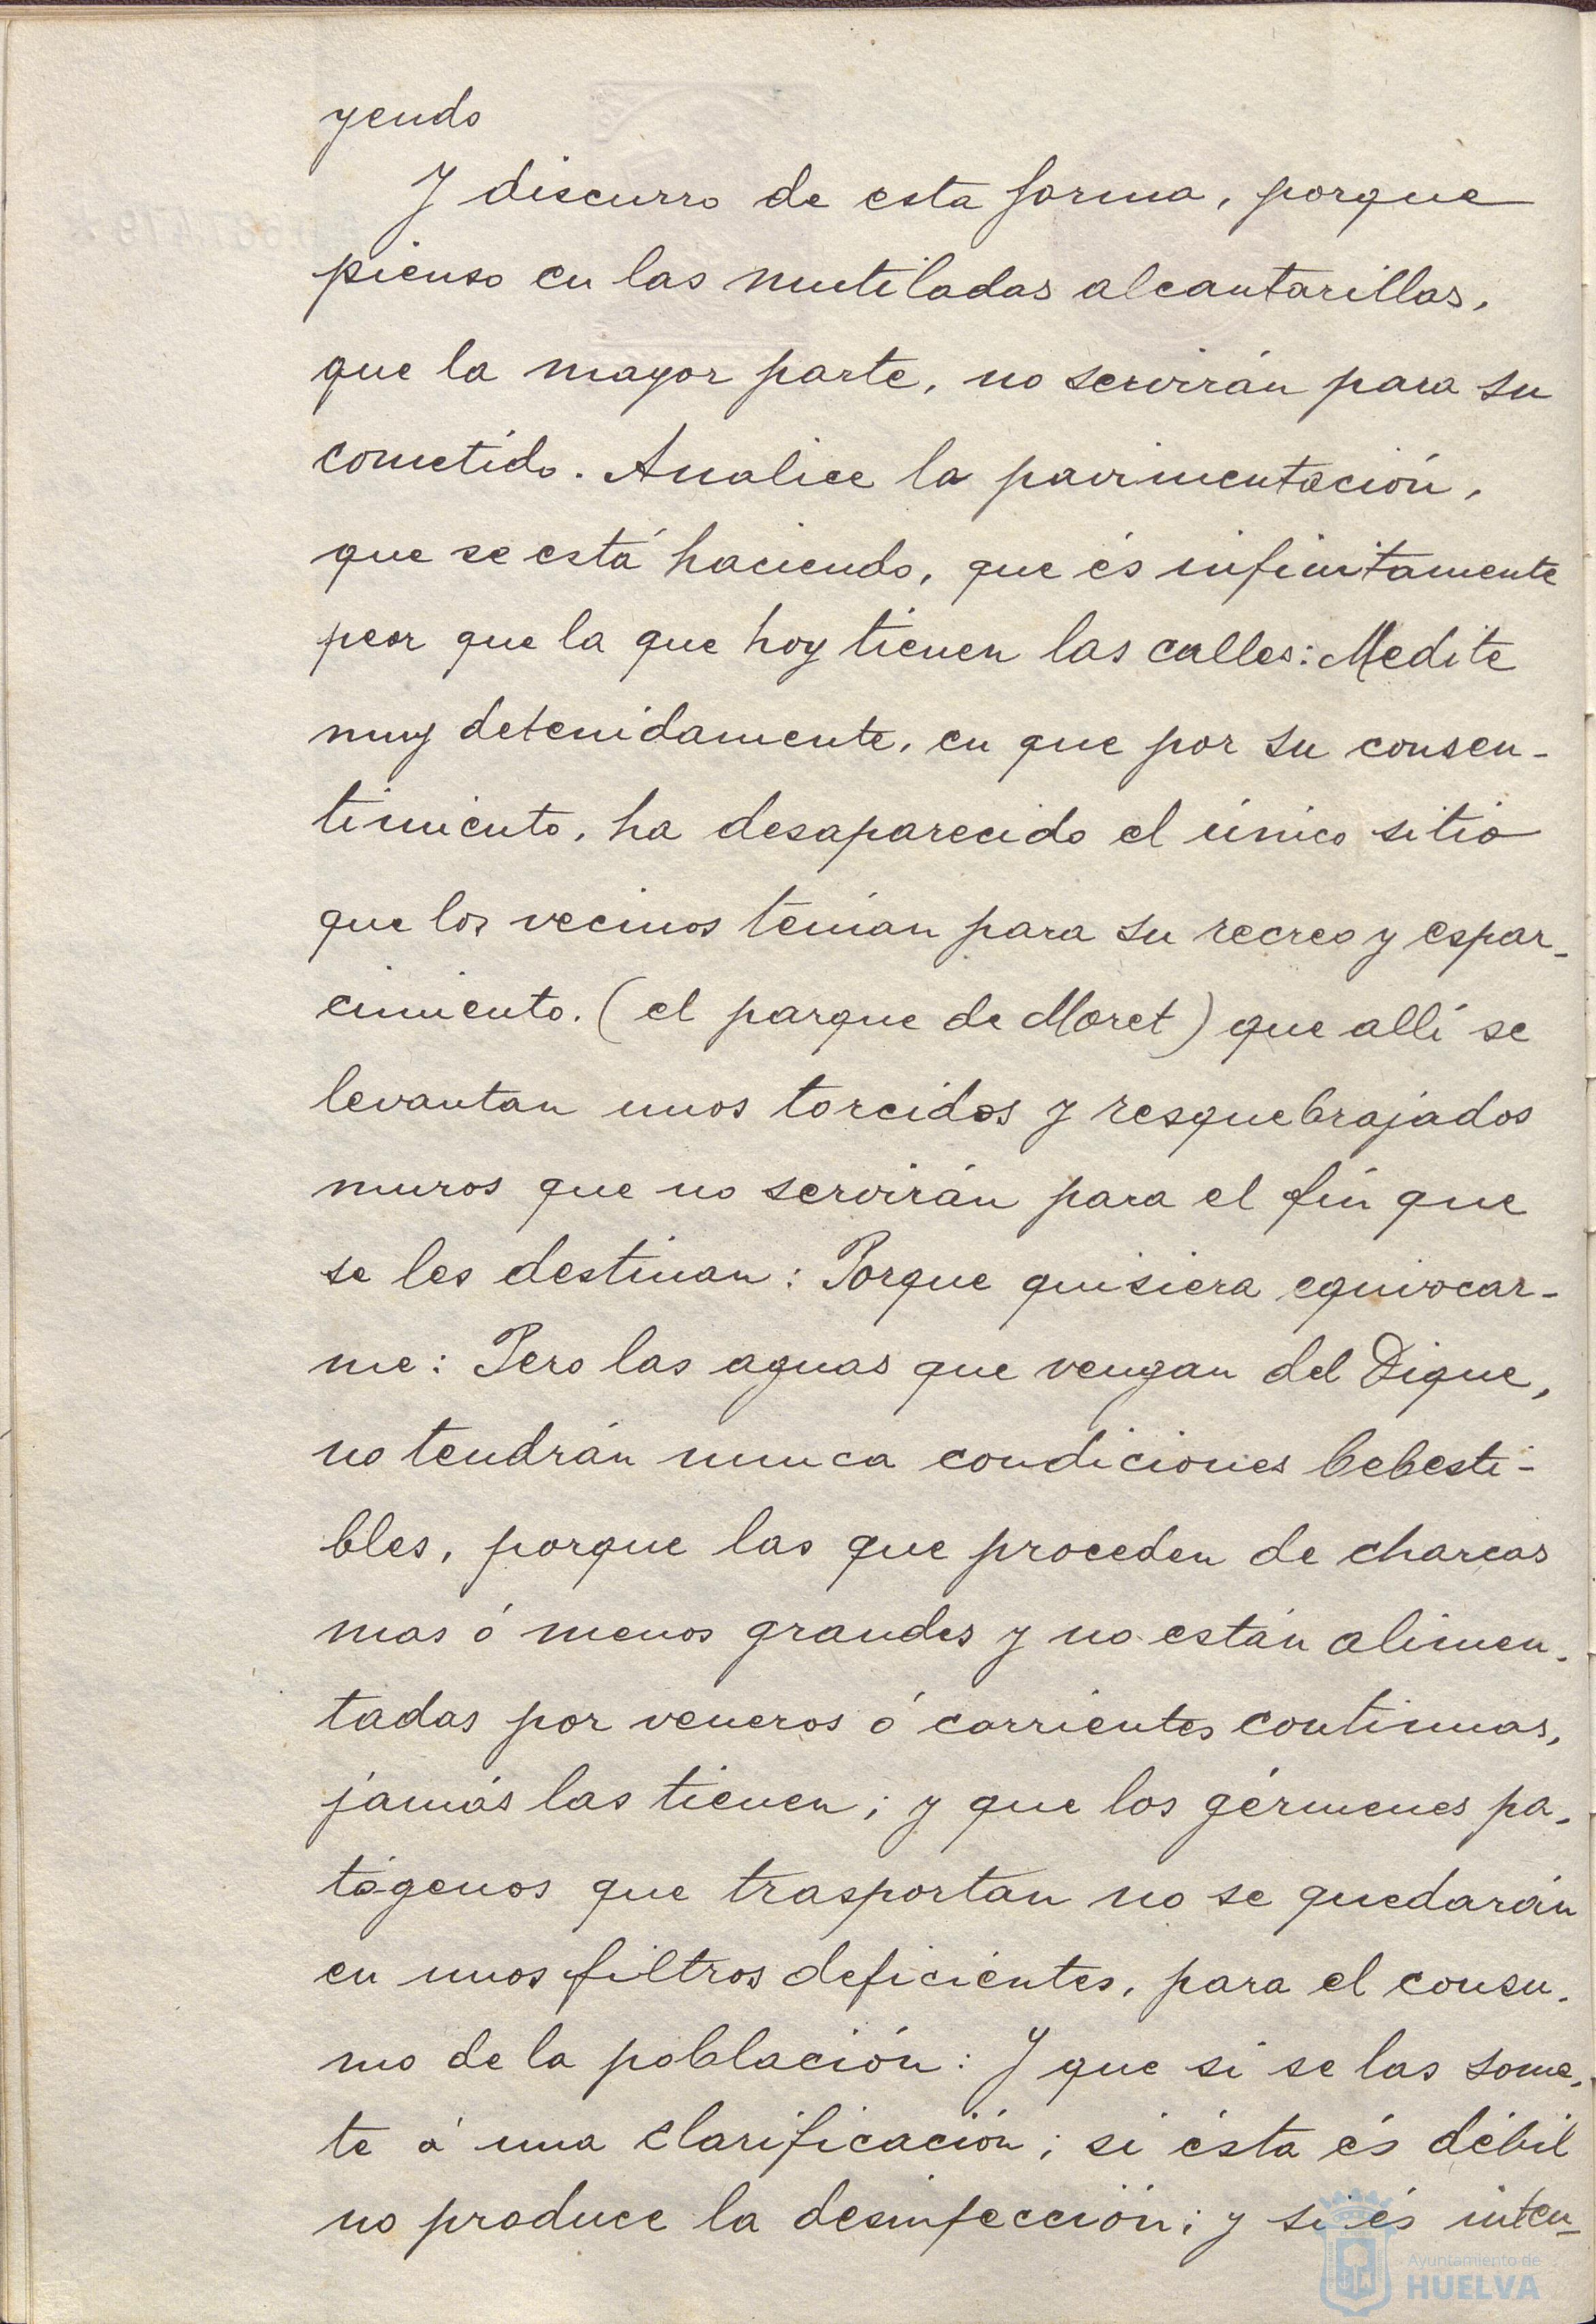 yendo
Y discurro de esta forma, porque
pienso en las mutiladas alcantarillas,
que la mayor parte, no servirán para su
cometido. Analice la pavimentación,
que se está haciendo, que és infinitamente
peor que la que hoy tienen las calles: Medite
muy detenidamente, en que por su consen-
timiento, ha desaparecido el único sitio
que los vecinos tenian para su recreo y espar-
cimiento. (el parque de Moret) que allí se
levantan unos torcidos y resquebrajados
muros que no servirán para el fin que
se les destinan: Porque quisiera equivocar-
me: Pero las aguas que vengan del Dique,
no tendrán nunca condiciones bebesti-
bles, porque las que proceden de charcas
mas ó menos grandes y no están alimen-
tadas por veneros ó corrientes continuas,
jamás las tienen; y que los gérmenes pa-
tógenos que trasportan no se quedarán
en unos filtros deficientes, para el consu-
mo de la población: Y que si se las some-
te á una clarificación; si ésta és débil
no produce la desinfección; y si és inten-
Ayuntamiento de
HUELVA